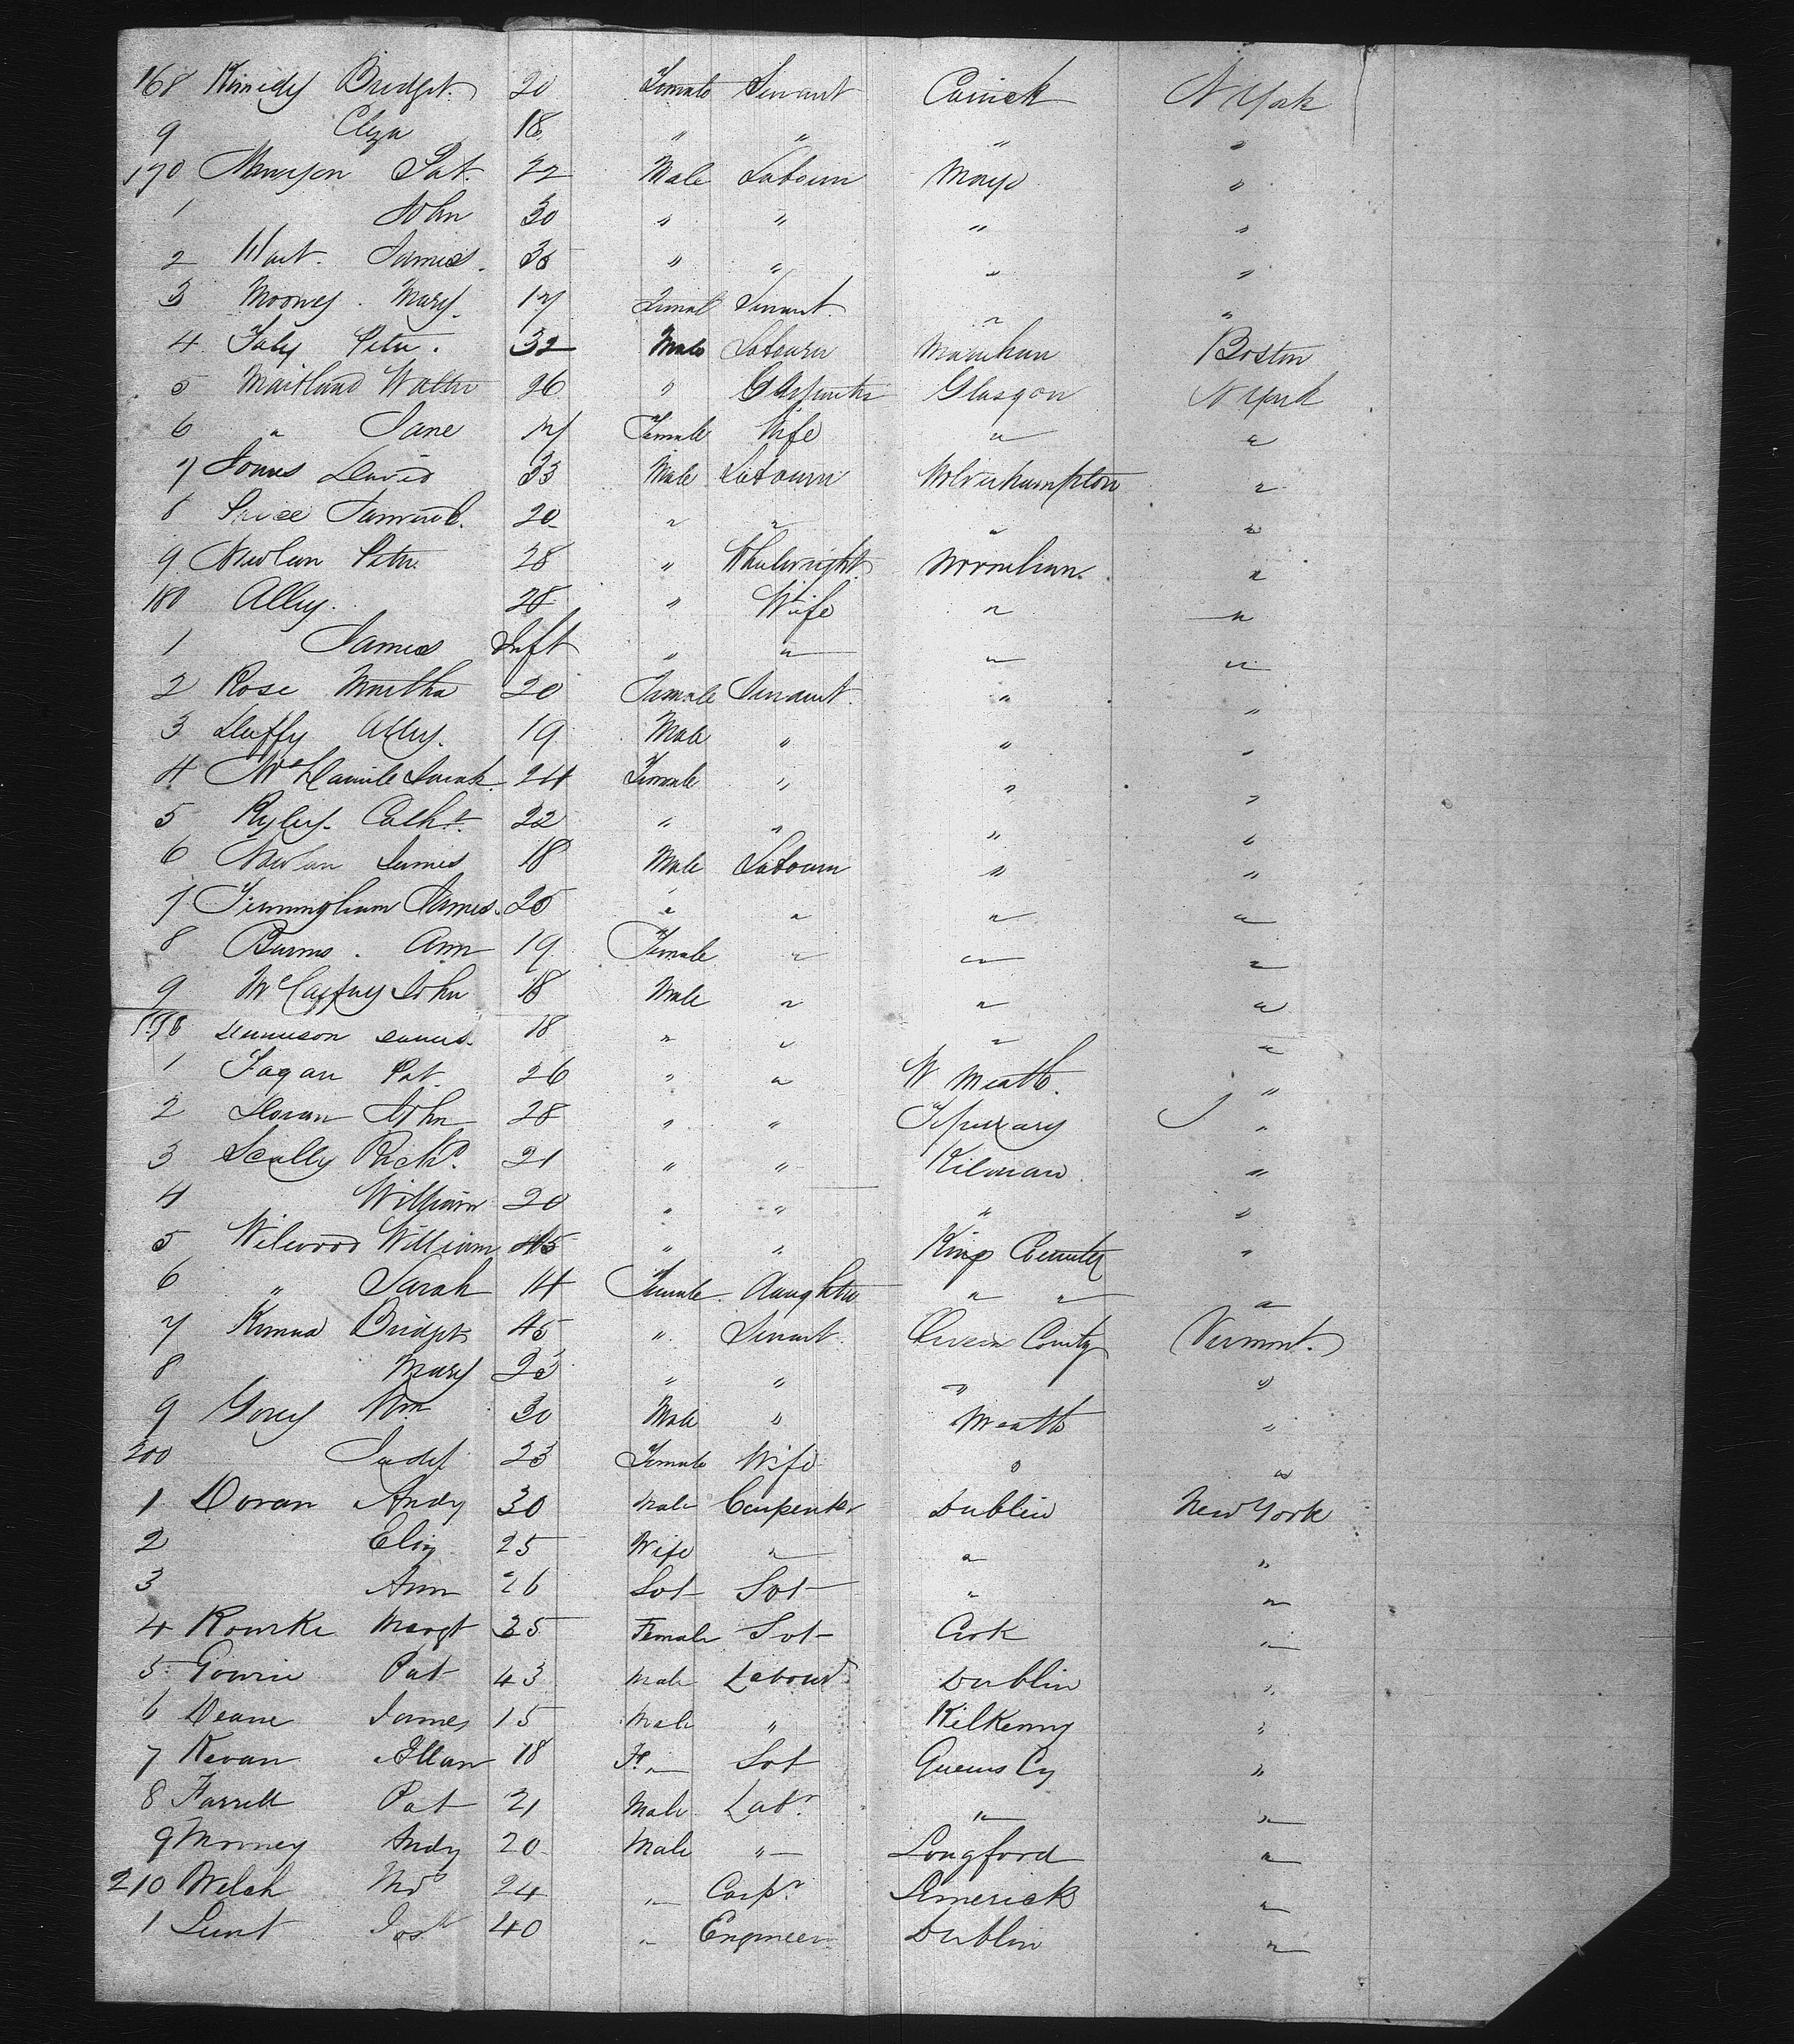 168 Kenedy Bridget. 20 Female Servant Carrick N York
9 Eliza 18 " " " "
170 Pat. 22 Male Labourer Mayo "
1 John 30 " " " "
2 Hart. James. 35 " " " "
3 Mooney. Mary. 17 Female Servant. " "
4 Peter. 32 Male Labourer Boston
5 Maitland Walter 26 " Carpenter Glasgow N York
6 " Jane 17 Female Wife " "
7 Jones David 33 Male Labourer Wolverhampton "
8 Price Samuel. 20 " " " "
9 Peter 28 " Wheelwright "
180 Alley. 28 " Wife " "
1 James Inft " " " "
2 Rose Martha 20 Female Servant. " "
3 Duffy Alley. 19 Male " " "
4 Sarah 24 Female " " "
5 Ryley. Cathe. 22 " " " "
6 James 18 Male Labourer " "
7 James. 25 " " " "
8 Burns. Ann 19 Female " " "
9 McCaffrey John 18 Male " " "
190 18 " " " "
1 Fagan Pat. 26 " " W Meath. "
2 Doran John 28 " " Tipperary "
3 Scally Richd. 21 " " "
4 William 20 " " " "
5 William 45 " " Kings County "
6 " Sarah 14 Female. Daughter " " "
7 Bridget 45 " Servant County Vermont.
8 Mary 23 " " " "
9 Wm 30 Male " Meath "
200 Judy 23 Female Wife " "
1 Doran Andy 30 Male Carpenter Dublin New York
2 Eliz 25 Wife " " "
3 Ann 26 Svt Svt " "
4 Rourke Margt 35 Female Svt Cork "
5 Pat 43 Male Labourr Dublin "
6 Deane James 15 Male " Kilkenny "
7 Kavan 18 Fe " Svt Queens Cy "
8 Farrell Pat 21 Male Labr. " "
9 Andy 20 Male " Longford "
210 Welsh 24 " Carpr Limerick "
1 Lunt Josh 40 " Engineer Dublin "